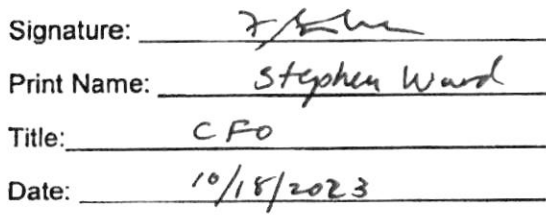 Signature:
Print Name: Stephen Ward
Title: CFO
Date: 10/18/2023